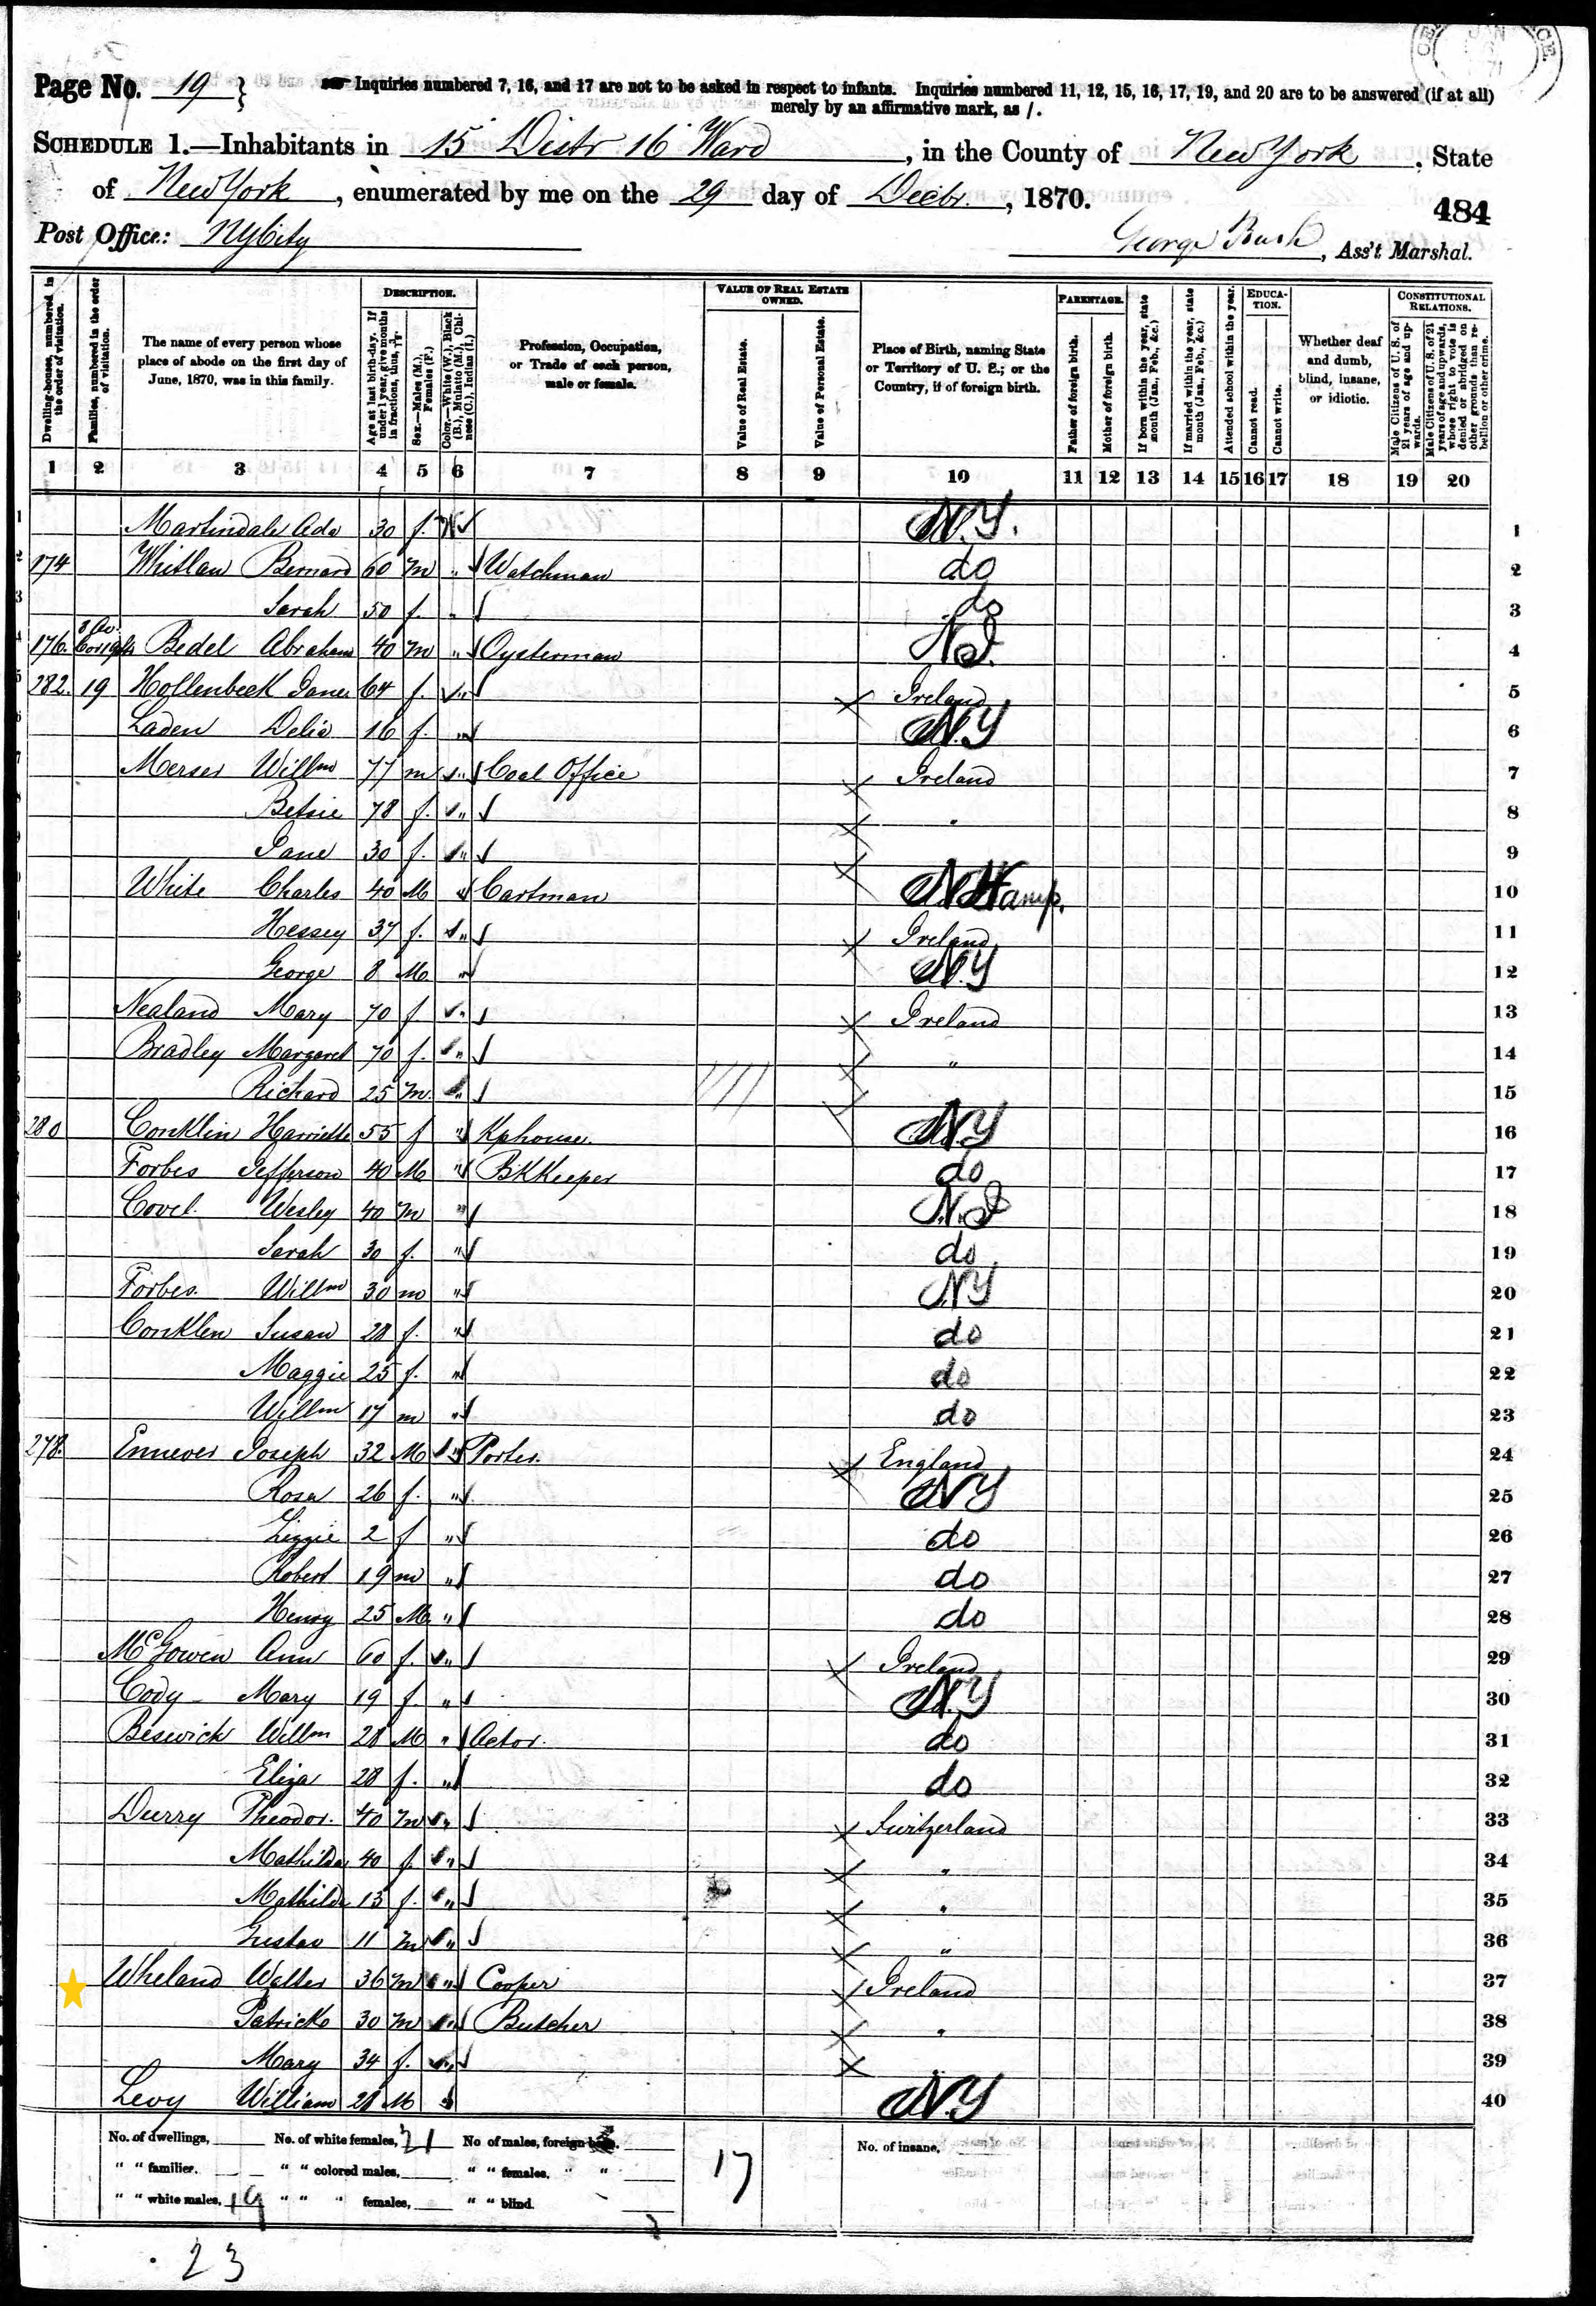 Page No. 19 }
Inquiries numbered 7, 16, and 17 are not to be asked in respect to infants. Inquiries numbered 11, 12, 15, 16, 17, 19, and 20 are to be answered (if at all)
merely by an affirmative mark, as /.
SCHEDULE 1.—Inhabitants in 15 Distr 16 Ward, in the County of New York, State
of New York, enumerated by me on the 29 day of Decbr., 1870.
484
Post Office: NYCity
George Bush, Ass't Marshal.
Dwelling-houses, numbered in the order of visitation.
Families, numbered in the order of visitation.
The name of every person whose place of abode on the first day of June, 1870, was in this family.
DESCRIPTION.
Age at last birth-day. If under 1 year, give months in fractions, thus,
Sex.—Males (M.), Females (F.)
Color.—White (W.), Black (B.), Mulatto (M.), Chinese (C.), Indian (I.)
Profession, Occupation, or Trade of each person, male or female.
VALUE OF REAL ESTATE OWNED.
Value of Real Estate.
Value of Personal Estate.
Place of Birth, naming State or Territory of U. S.; or the Country, if of foreign birth.
PARENTAGE.
Father of foreign birth.
Mother of foreign birth.
If born within the year, state month (Jan., Feb., &c.)
If married within the year, state month (Jan., Feb., &c.)
Attended school within the year.
EDUCATION.
Cannot read.
Cannot write.
Whether deaf and dumb, blind, insane, or idiotic.
CONSTITUTIONAL RELATIONS.
Male Citizens of U. S. of 21 years of age and upwards.
Male Citizens of U. S. of 21 years of age and upwards, whose right to vote is denied or abridged on other grounds than rebellion or other crime.
1 2 3 4 5 6 7 8 9 10 11 12 13 14 15 16 17 18 19 20
1 Martindale Ada 30 f. W N.Y. 1
2 174 Whitlaw Bernard 60 m " Watchman do 2
3 Sarah 50 f. " do 3
4 176. Bedel Abraham 40 m " Oysterman N.J. 4
5 282. 19 Hollenbeck Janes 64 f. " Ireland 5
Laden Delia 16 f. " N.Y 6
7 Merser Willm 77 m " Coal Office Ireland 7
Betsie 78 f. " " 8
Jane 30 f. " 9
White Charles 40 M Cartman N.Hamp. 10
Hessey 37 f. " Ireland 11
George 8 M " N.Y 12
Nealand Mary 70 f " Ireland 13
Bradley Margaret 70 f. " " 14
Richard 25 m. " 15
280 Conklin Harriette 55 f " Kphouse. N.Y 16
Forbes Jefferson 40 M " BKKeeper do 17
Covel. Wesley 40 m " N.J 18
Sarah 30 f. " do 19
Forbes. Willm 30 m " NY 20
Conklen Susan 28 f. " do 21
Maggie 25 f. " do 22
Willm 17 m " do 23
278. Ennever Joseph 32 M " Porter. England 24
Rosa 26 f. " NY 25
Lizzie 2 f " do 26
Robert 19 m " do 27
Henry 25 M " do 28
McGowen Ann 60 f. " Ireland 29
Cody - Mary 19 f. " N.Y 30
Beswick Willm 28 M " Actor. do 31
Eliza 28 f. " do 32
Durry Theodor. 40 m " Switzerland 33
Mathilda 40 f. " " 34
Mathilda 13 f. " " 35
Gustav 11 m " " 36
Wheland Walter 36 m " Cooper Ireland 37
Patrick 30 m " Butcher " 38
Mary 34 f. " 39
Levy William 28 M N.Y 40
No. of dwellings, No. of white females, 21 No of males, foreign born. 17 No. of insane,
" " families. " " colored males, " " females, " "
" " white males, 19 " " " females, " " blind.
23